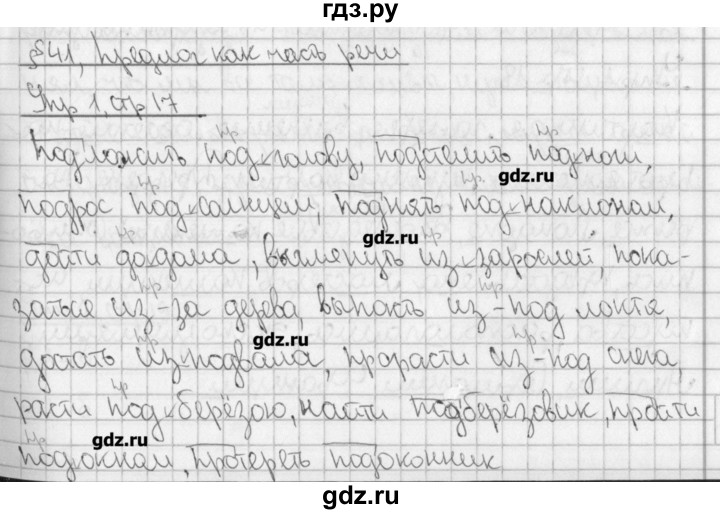 гдз.ру
§41, Предлог как часть речи
Упр 1, стр 17
пр пр
Подложить под голову, подстелить под ноги,
gdz.ru
пр пр
подрос под солнцем, поднять под наклоном,
gdz.ru
пр пр
дойти до дома, выглянуть из зарослей, пока-
пр пр
заться из-за дерева, выпасть из-под локтя,
gdz.ru
пр пр
достать из подвала, прорасти из-под снега,
пр
расти под берёзою, найти подберёзовик, пройти
gdz.ru
пр
под окнам, протереть подоконник
gdz.ru